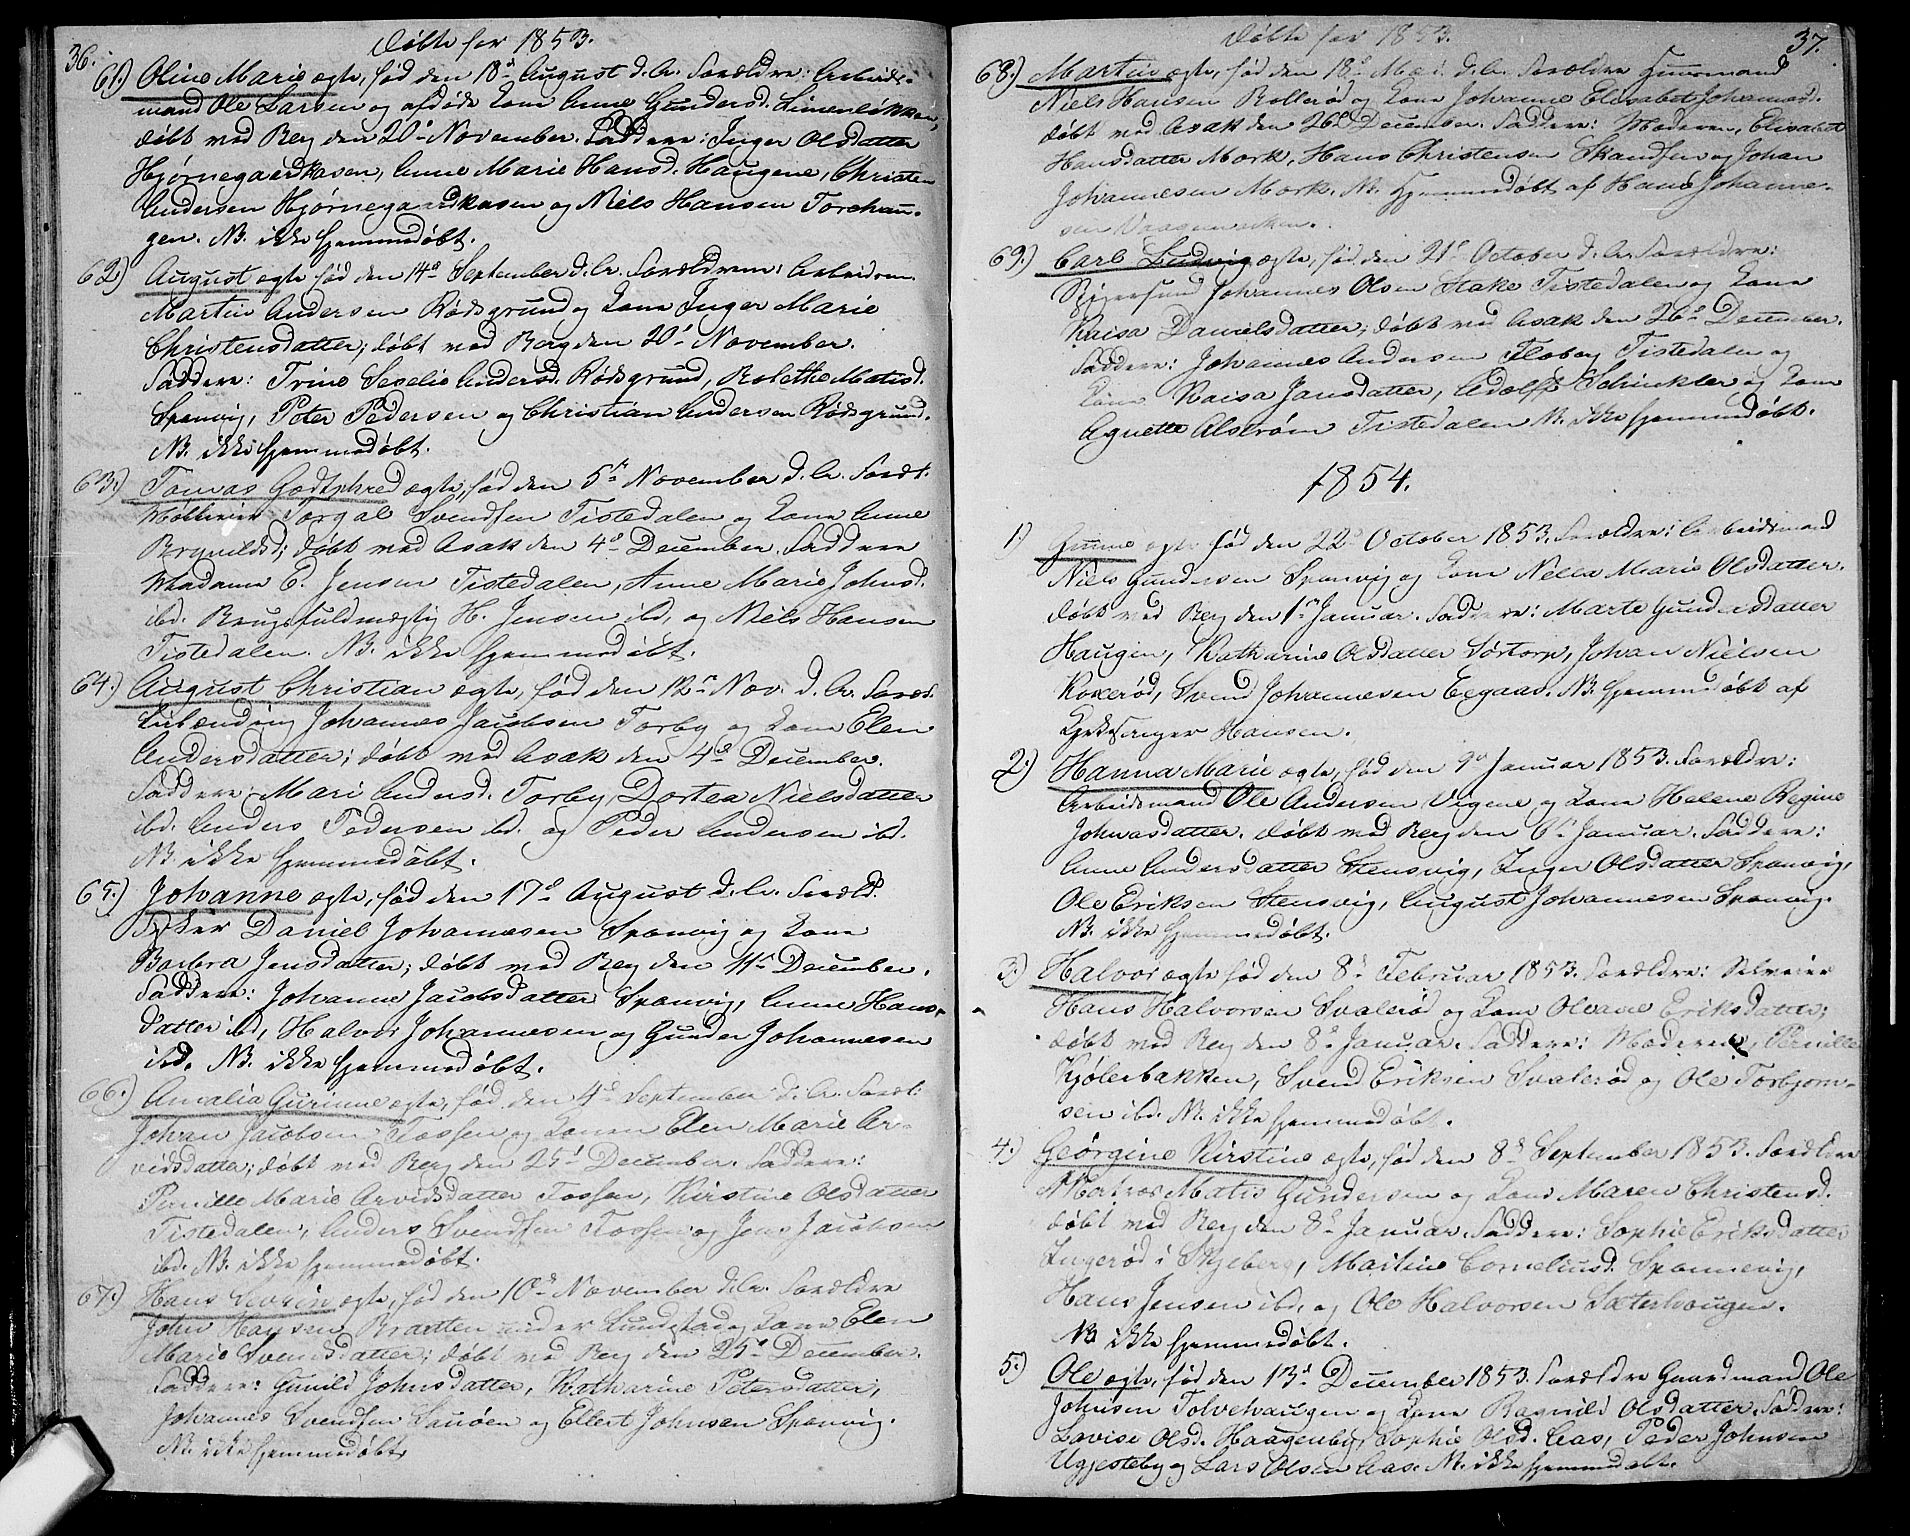 36.
Döbte for 1853.
61.) Oline Marie ægte, fød den 18d August d. A. Forældre: Arbeids-
mand Ole Larsen og afdøde Kone Anne Gundersd. Limerløkken,
døbt ved Berg den 20d November. Faddere: Inger Olsdatter
Hjørnegaardkasen, Anne Marie Hansd. Haugene, Christen
Andersen Hjørnegaardkasen og Niels Hansen Torehau-
gen. NB. ikke hjemmedøbt.
62.) August ægte fød den 14d September d. A. Forældrene: Arbeidsm.
Martin Andersen Rødsgrund og Kone Inger Marie
Christensdatter; døbt ved Berg den 20d November.
Faddere: Trine Seselie Andersd. Rødsgrund, Bolette Matisd.
Sponvig, Peter Pedersen og Christian Andersen Rødsgrund.
NB. ikke hjemmedøbt.
63.) Tomas Godtphred ægte, fød den 5te November d. A. Foræl.
Torgal Svendsen Tistedalen og Kone Anne
døbt ved Asak den 4d December. Faddere
Madame E. Jensen Tistedalen, Anne Marie Johnsd.
ibd. Brugsfuldmægtig H. Jensen ibd. og Niels Hansen
Tistedalen. NB. ikke hjemmedøbt.
64.) August Christian ægte, fød den 12te Nov. d. A. Foræl.
Johannes Jacobsen Torby og Kone Elen
Andersdatter; døbt ved Asak den 4d December.
Faddere: Mari Andersd. Torby, Dortea Nielsdatter
ibd. Anders Pedersen ibd. og Peder Andersen ibd.
NB ikke hjemmedøbt.
65.) Johanne ægte, fød den 17d August d. A. Foræld.
Daniel Johannesen Sponvig og Kone
Barbra Jensdatter; døbt ved Berg den 11te December.
Faddere: Johanne Jacobsdatter Sponvig, Anne Hans-
datter ibd, Halvor Johannesen og Gunder Johannesen
ibd. NB. ikke hjemmedøbt.
66.) Amalia Gurinne ægte, fød den 4d September d. A. Foræl:
Johan Jacobsen Fossen og Konen Elen Marie Ar-
vidsdatter; døbt ved Berg den 25d December. Faddere:
Pernille Marie Arvidsdatter Fossen, Kirstine Olsdatter
Tistedalen, Anders Svendsen Fossen og Jens Jacobsen
ibd. NB. ikke hjemmedøbt.
67.) Hans Sivrin ægte, fød den 10d November d. A. Forældre
John Hansen Bratten under Lundestad og Kone Elen
Marie Svendsdatter; døbt ved Berg den 25d December.
Faddere: Gunild Johnsdatter, Katharine Petersdatter,
Johannes Svendsen Sauøen og Ellert Johnsen Sponvig.
NB. ikke hjemmedøbt.
37.
Döbte for 1853.
68.) Martin ægte, fød den 18d Mai d. A. Forældre Huusmand
Niels Hansen Bollerød og Kone Johanne Elisabet Johannesd.
døbt ved Asak den 26d December. Faddere: Moderen, Elisabet
Hansdatter Mork, Hans Christensen Skandsen og Johan
Johannesen Mork. NB. Hjemmedøbt af Hans Johanne-
sen
69.) Carl Ludvig ægte, fød den 21d October d. A. Forældre:
Johannes Olsen Stake Tistedalen og Kone
Kaisa Danielsdatter; døbt ved Asak den 26d December.
Faddere: Johannes Andersen Floberg Tistedalen og
Kone Kaisa Jansdatter, Adolff Schinkler og Kone
Agnette Alström Tistedalen NB. ikke hjemmedøbt.
1854.
1.) ægte fød den 22d October 1853. Forældre: Arbeidsmand
Niels Gundersen Sponvig og Kone Nella Marie Olsdatter.
døbt ved Berg den 1te Januar. Faddere: Marte Gundersdatter
Haugen, Katharine Olsdatter Sørtorp, Johan Nielsen
Roxerød, Svend Johannesen Eegaas. NB. hjemmedøbt af
Kirkesanger Hansen.
2.) Hanna Marie ægte, fød den 9d Januar 1853. Forældre:
Arbeidsmand Ole Andersen Vigene og Kone Helene Regine
Johnasdatter. døbt ved Berg den 6d Januar. Faddere:
Anne Andersdatter Stensvig, Inger Olsdatter Sponvig,
Ole Eriksen Stensvig, August Johannesen Sponvig.
NB. ikke hjemmedøbt.
3.) Halvor ægte fød den 8d Februar 1853. Forældre: Selveier
Hans Halvorsen Svalerød og Kone Oleane Eriksdatter;
døbt ved Berg den 8d Januar. Faddere: Moderen, Pernille
Kjølerbakken, Svend Eriksen Svalerød og Ole Torbjorn-
sen ibd. NB. ikke hjemmedøbt.
4.) Geörgine Kirstine ægte, fød den 8d September 1853. Forældre
Matis Gundersen og Kone Maren Christensd.
døbt ved Berg den 8d Januar. Faddere: Sophie Eriksdatter
Ingerød i Skjeberg, Martine Corneliusd. Sponnevig,
Hans Jensen ibd, og Ole Halvorsen Sæterhaugen.
NB ikke hjemmedøbt.
5.) Ole ægte, fød den 13d December 1853. Forældre Gaardmand Ole
Johnsen Tolvehaugen og Kone Ragnild Olsdatter. Faddere:
Lovise Olsd. Haagenby, Sophie Olsd. Aas, Peder Johnsen
Ugjesteby og Lars Olsen Aas. NB. ikke hjemmedøbt.